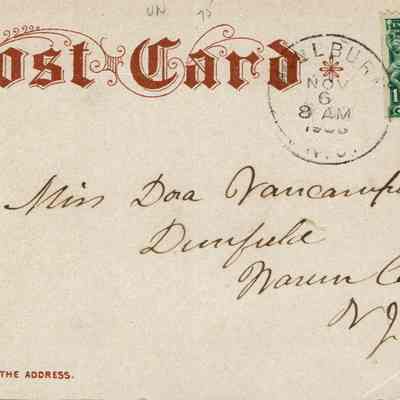 UN
ost Card
LBUR
NOV
6
8 AM
N.J.
1
Miss Dora Vancamp
Dunfield
Warren Co
NJ
THE ADDRESS.